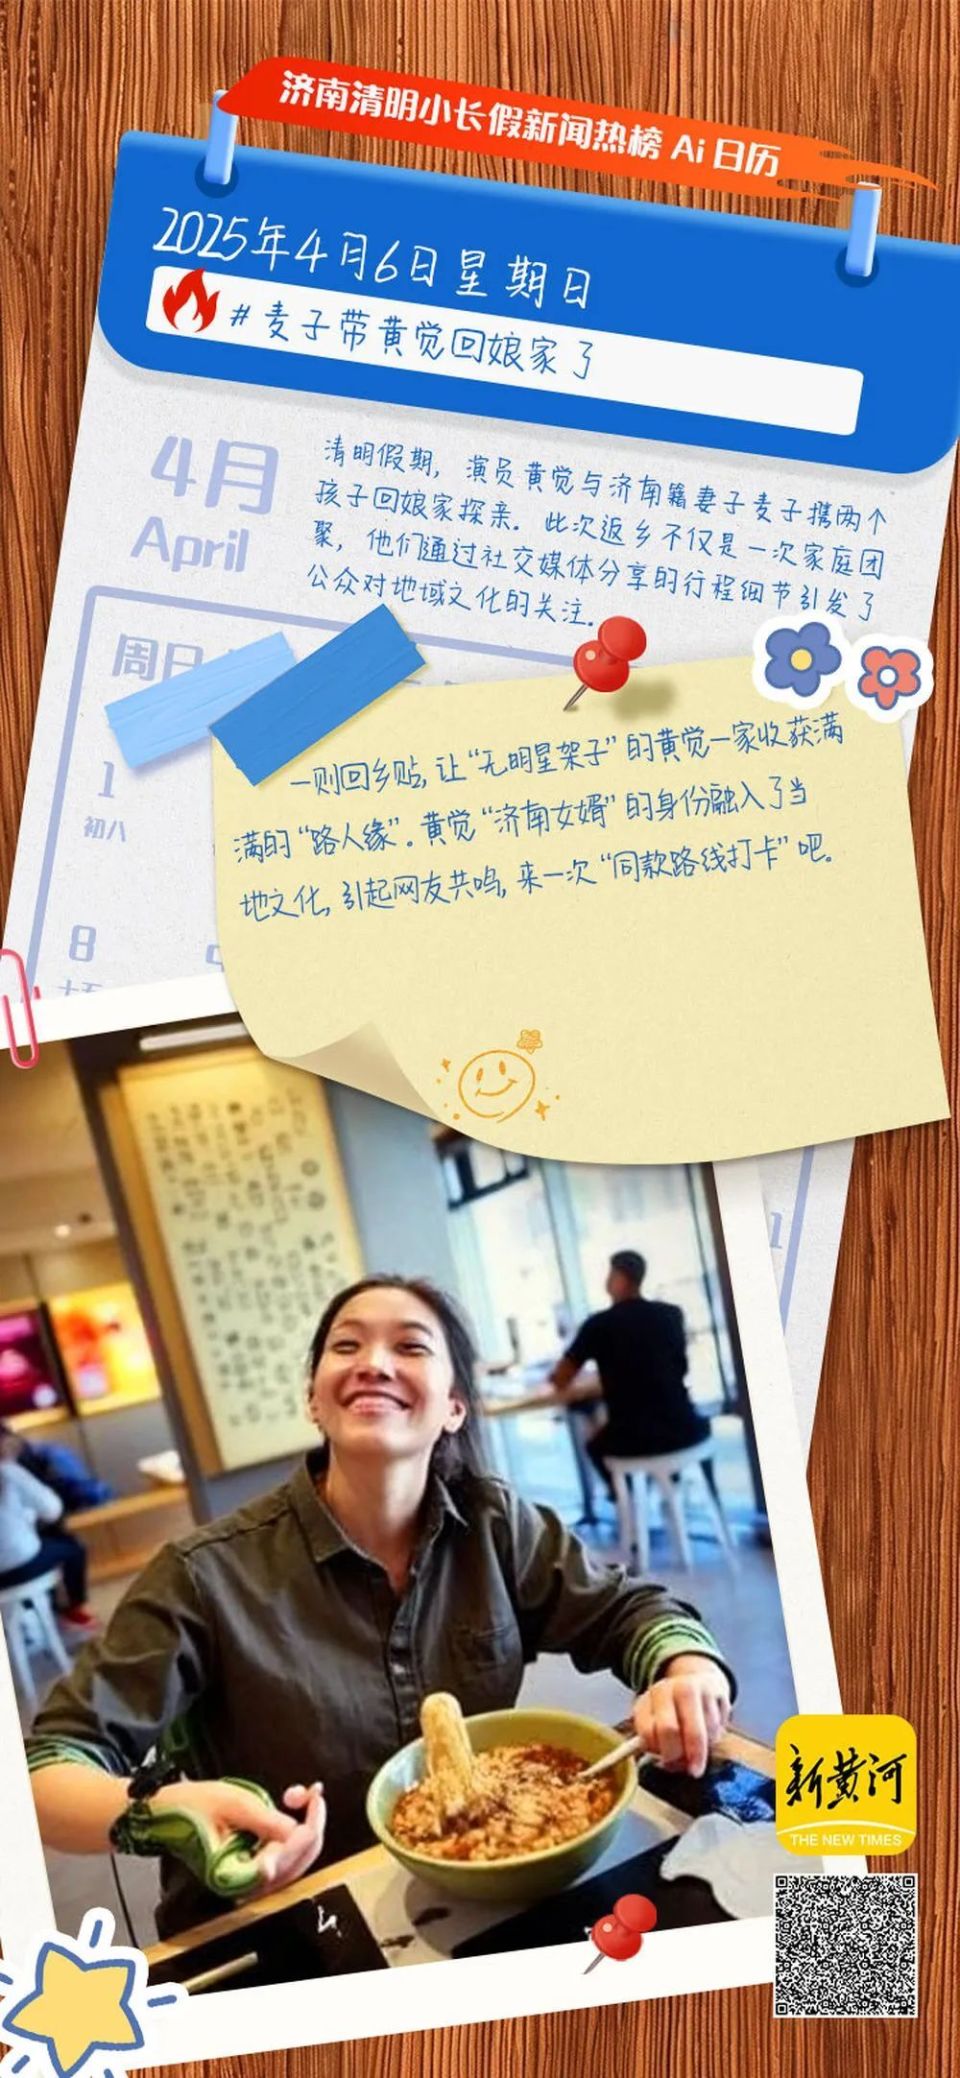 济南清明小长假新闻热榜 Ai 日历
2025年4月6日星期日
#麦子带黄觉回娘家了
4月
April
清明假期，演员黄觉与济南籍妻子麦子携两个
孩子回娘家探亲．此次返乡不仅是一次家庭团
聚，他们通过社交媒体分享的行程细节引发了
公众对地域文化的关注．
周日
1
初八
8
一则回乡贴，让“无明星架子”的黄觉一家收获满
满的“路人缘”．黄觉“济南女婿”的身份融入了当
地文化，引起网友共鸣，来一次“同款路线打卡”吧。
新黄河
THE NEW TIMES